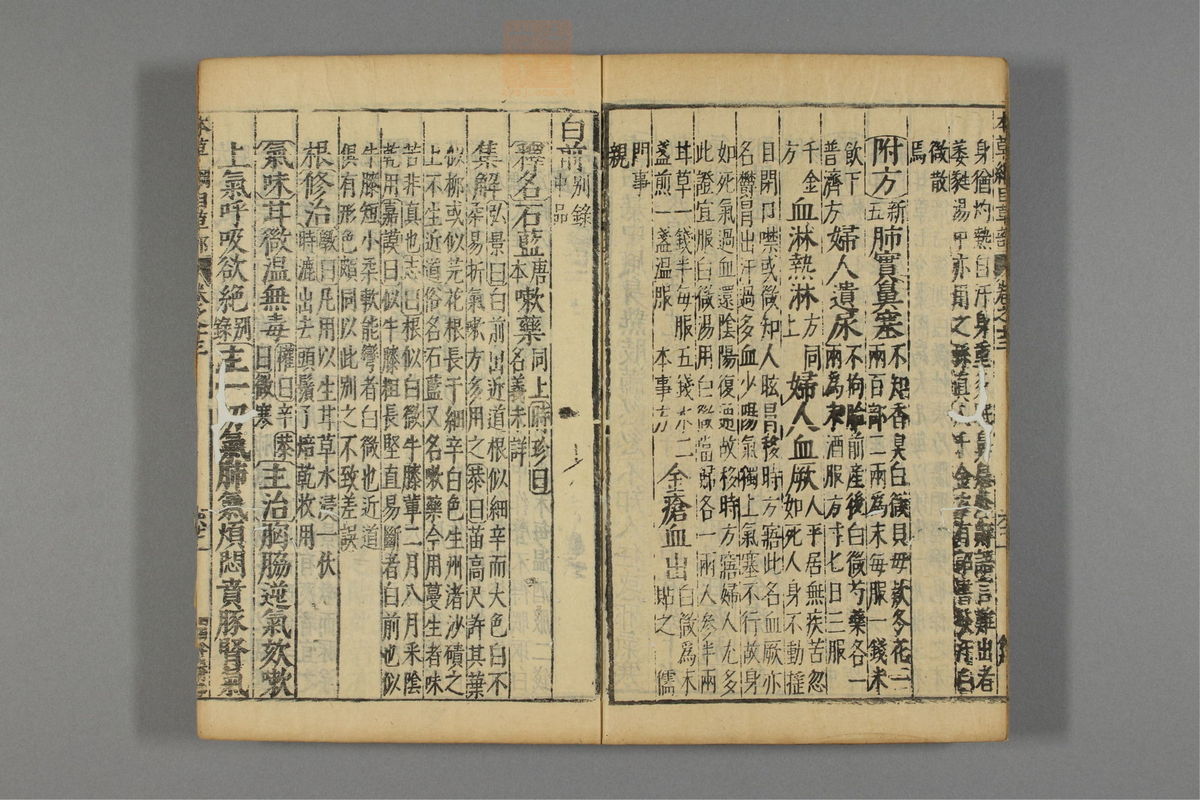 身猶灼熱自汗身重多眠鼻息必鼾語言難出者
萎蕤湯中亦用之孫眞人千金方有詔書發汗白
微散
焉
附方新五肺實鼻塞不知香臭白微貝母款冬花一兩百部二兩爲末每服一錢米飲下
普濟方婦人遺尿不拘胎前産後白微芍藥各一兩爲末酒服方寸七日三服
千金方血淋熱淋方同上婦人血厥人平居無疾苦忽如死人身不動揺
目閉口噤或微知人眩冒移時方寤此名血厥亦
名鬱冒出汗過多血少陽氣獨上氣塞不行故身
如死氣過血還陰陽復通故移時方寤婦人尤多
此證宜服白微湯用白微當歸各一兩人參半兩
甘草一錢半每服五錢水二盞煎一盞温服本事方金瘡血出白微爲末貼之儒
門事親
白前別錄中品
釋名石藍唐本嗽藥同上時珍曰名義未詳
集解弘景曰白前出近道根似細辛而大色白不
柔易折氣嗽方多用之恭曰苗高尺許其葉
似柳或似芫花根長于細辛白色生州渚沙磧之
上不生近道俗名石藍又名嗽藥今用蔓生者味
苦非真也志曰根似白微牛膝輩二月八月采陰
乾嘉謨曰似牛膝粗長堅直易斷者白前也似
牛膝短小柔軟能彎者白微也近道
俱有形色頗同以此別之不致差誤
根修治斅曰凡用以生甘草水浸一伏時漉出去頭鬚了焙乾收用
氣味甘微温無毒權曰辛恭曰微寒主治胸脇逆氣欬嗽
上氣呼吸欲絶別錄主一切氣肺氣煩悶賁豚腎氣